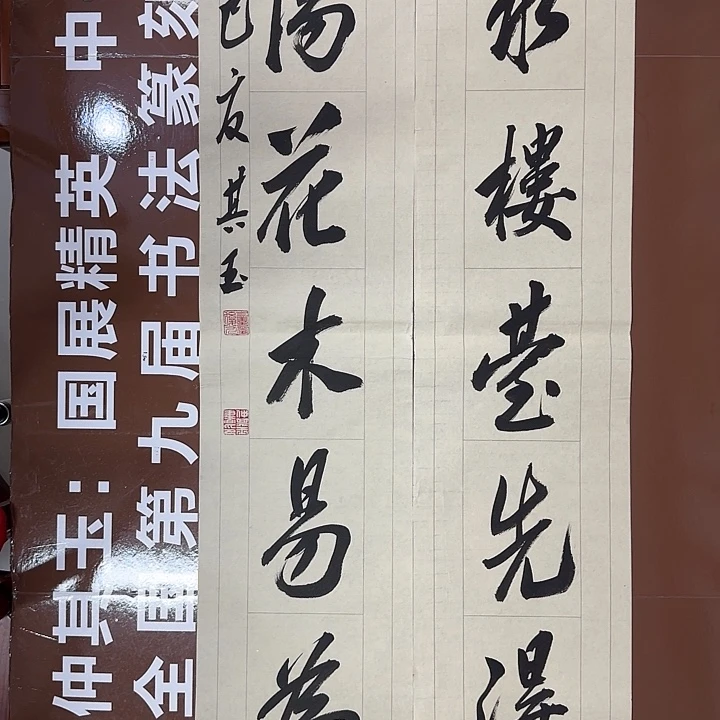 水樓臺先得
陽花木易為
巳夏其玉
仲其玉:国展精英 中
全国第九届书法篆刻